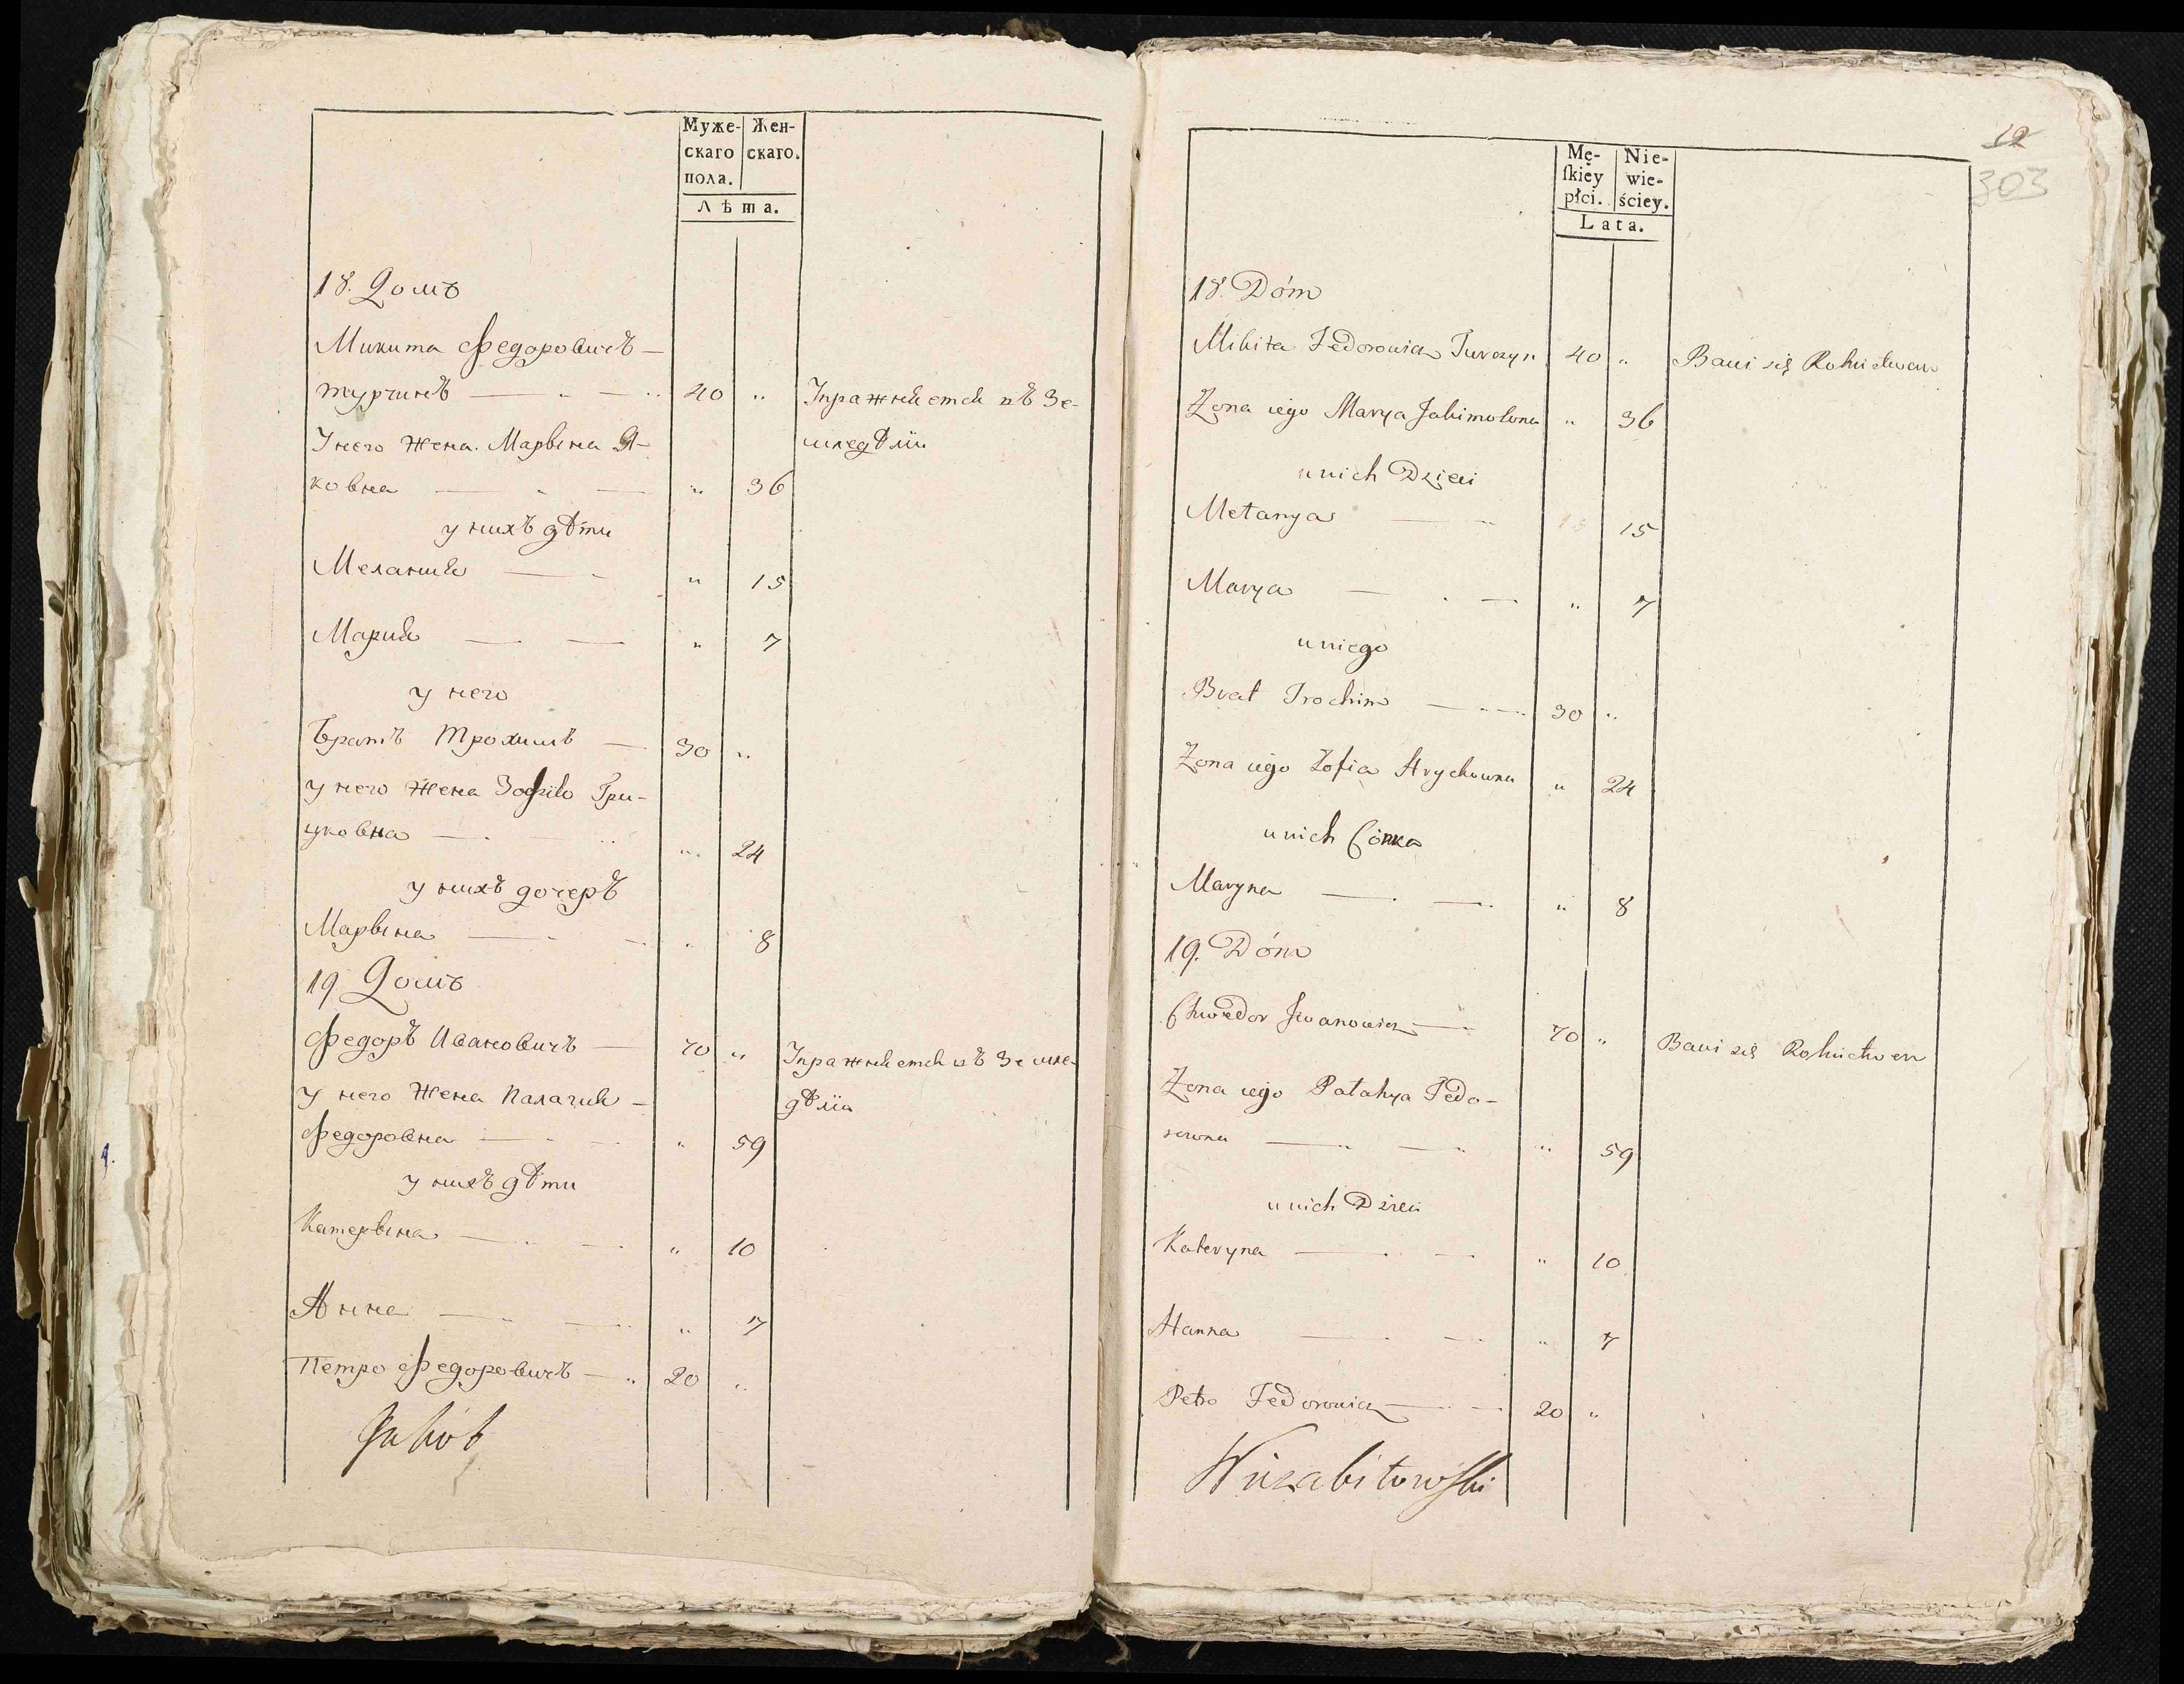 Муже-
скаго
пола.
Жен-
скаго.
Лѣта.
18. Домъ
Микита Федоровичъ —
турчинъ — 40 „ Упражняется въ Зе-
У него Жена Марвина Я- мледѣлiи
ковна — „ 36
у нихъ дѣти
Мелания — „ 15
Мария — „ 7
у него
Братъ Трохимъ — 30 „
у него Жена Зофия Гри-
цковна — „ 24
у нихъ дочеръ
Марвина — „ 8
19 Домъ
Федоръ Ивановичъ — 70 „ Упражняется въЗемле-
у него Жена Палагия — дѣлiи
Федоровна — „ 59
у нихъ дѣти
Катервина — „ 10
Анна — „ 7
Петро Федоровичъ — 20 „
Jakób
12
303
Mę-
ſkiey
płci.
Nie-
wie-
ściey.
Lata.
18. Dóm
Mikita Fedorowicz Turczyn 40 „ Bawi się Rolnictwem
Żona iego Marya Jakimowna „ 36
u nich Dzieci
Metanya — 15
Marya — „ 7
u niego
Brat Trochim — 30 „
Żona iego Zofia Hrychowna „ 24
u nich Córka
Maryna — „ 8
19. Dóm
Chwedor Iwanowicz — 70 „ Bawi się Rolnictwem
Żona iego Patahya Fedo-
rowna — „ 59
u nich Dzieci
Kateryna — „ 10
Hanna — „ 7
Petro Fedorowicz — 20 „